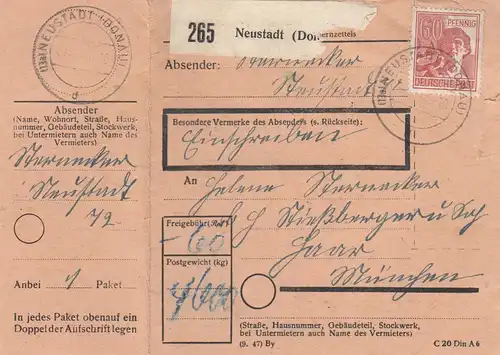 (13a) NEUSTADT (DONAU)
d
265 Neustadt (Don
ernzettels
Absender: Sternecker
Neustadt
60 PFENNIG
DEUTSCHE POST
(13a) NEUSTADT (DONAU)
Absender
(Name, Wohnort, Straße, Haus-
nummer, Gebäudeteil, Stockwerk,
bei Untermietern auch Name des
Vermieters)
Sternecker
Neustadt
72
Besondere Vermerke des Absenders (s. Rückseite):
Einschreiben
An Helene Sternecker
b/h Stießberger u Sch
Haar
München
Freigebühr (RM)
- 60
Postgewicht (kg)
Anbei 1 Paket
In jedes Paket obenauf ein
Doppel der Aufschrift legen
(Straße, Hausnummer, Gebäudeteil, Stockwerk,
bei Untermietern auch Name des Vermieters)
(9. 47) By
C 20 Din A 6